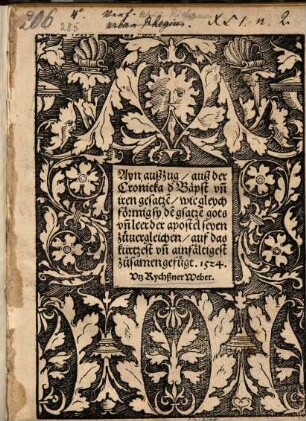 206
4°
285
Urban Rhegius.
Ayn außzug / auß der
Cronicka d̕ Bäpst vñ
iren gesatzē / wie gleych
förmig sy dē gsatzē gots
vñ leer der apostel seyen
zůuergleichen / auf das
kürtzest vñ ainfältigest
zůsamengefügt. 1524.
Vtz Rychßner Weber.